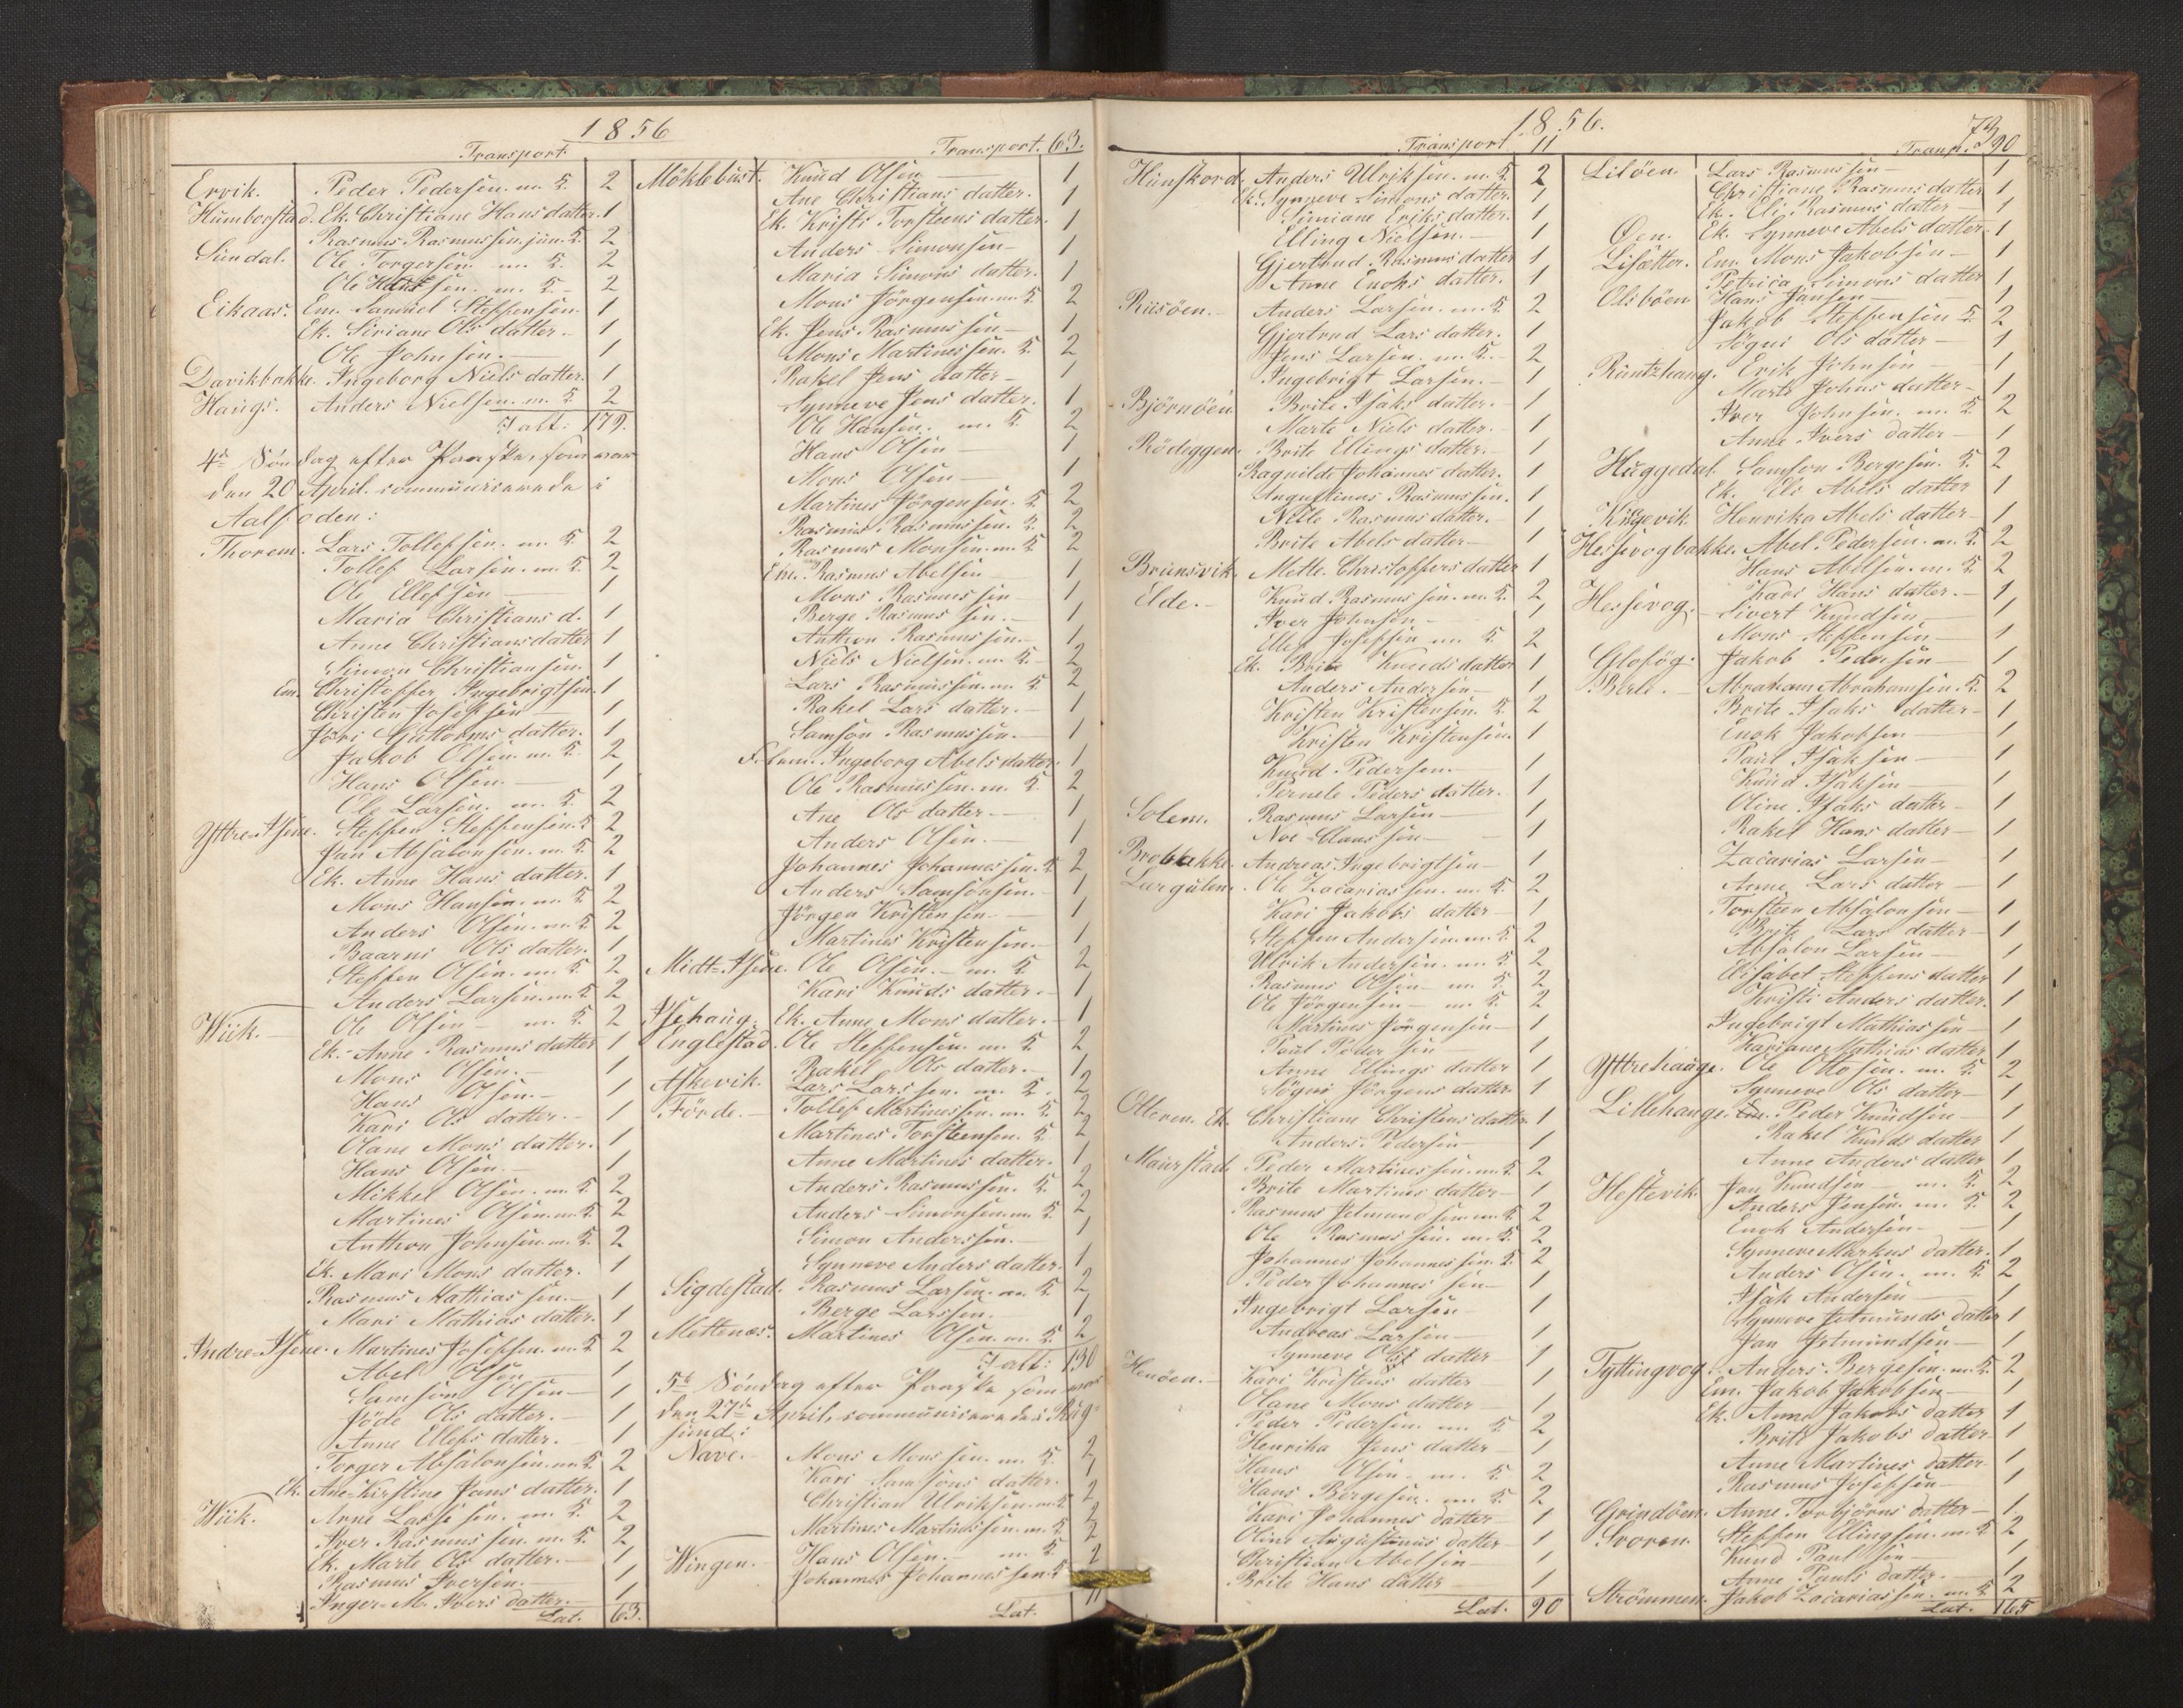 1856
Transport.
Ervik. Peder Pedersen. m. K. 2
Humborstad. Ek. Christiane Hans datter. 1
Rasmus Rasmussen. jun. K. 2
Sundal. Ole Torgersen. m. K. 2
Ole Hansen. m. K. 2
Eikaas. Em. Samuel Steffensen. 1
Ek. Siriane Ols datter. 1
Ole Johnsen. 1
Davikbakke. Ingeborg Niels datter. 1
Haugs. Anders Nielsen. m. K. 2
I alt: 179.
4de Søndag efter Paaske, som var
den 20 April. communicerede i
Aalfoden:
Thorem. Lars Tollefsen. m. K. 2
Tollef Larsen. m. K. 2
Ole Ellefsen 1
Maria Christians d. 1
Anne Christians datter 1
Simon Christiansen. 1
Em. Christoffer Ingebrigtsen. 1
Christen Josefsen 1
Jöri Guttorms datter. 1
Jakob Olsen. m. K. 2
Hans Olsen. 1
Ole Larsen. m. K. 2
Yttre-Isene. Steffen Steffensen. K. 2
Jan Absalonsen. m. K. 2
Ek. Anne Hans datter. 1
Mons Hansen. m. K. 2
Anders Olsen. m. K. 2
Baarni Ols datter. 1
Steffen Olsen. m. K. 2
Anders Larsen. m. K. 2
Wiik. Ole Olsen m. K. 2
Ek. Anne Rasmus datter 1
Mons Olsen. 1
Hans Olsen. 1
Kari Ols datter. 1
Olane Mons datter. 1
Hans Olsen. 1
Mikkel Olsen. m. K. 2
Martines Olsen. m. K. 2
Anthon Johnsen. m. K. 2
Ek. Mari Mons datter. 1
Rasmus Mathiassen. 1
Mari Mathias datter. 1
Indre-Isene. Martines Josefsen. m. K. 2
Abel Olsen 1
Samson Olsen 1
Jöde Ols datter. 1
Anne Ellefs datter. 1
Torger Absalonsen. m. K. 2
Ek. Ane-Kirstine Jans datter. 1
Wiik. Arne Lassesen. m. K. 2
Iver Rasmussen. m. K. 2
Ek. Marte Ols datter. 1
Rasmus Iversen. 1
Inger-M. Ivers datter. 1
Lat. 63.
Transport. 63.
Möklebust. Knud Olsen 1
Ane Christians datter. 1
Ek. Kristi Torsteens datter. 1
Anders Simonsen 1
Maria Simons datter. 1
Mons Jörgensen. m. K. 2
Ek. Jens Rasmussen 1
Mons Martinessen. K. 2
Rakel Jens datter 1
Synneve Jens datter. 1
Ole Hansen. m. K. 2
Hans Olsen 1
Mons Olsen 1
Martines Jörgensen. K. 2
Rasmus Rasmussen. K. 2
Rasmus Monsen. m. K. 2
Em. Rasmus Abelsen 1
Mons Rasmussen 1
Berge Rasmussen. 1
Anthon Rasmussen. 1
Niels Nielsen. m. K. 2
Lars Rasmussen. m. K. 2
Rakel Lars datter. 1
Samson Rasmussen. 1
Ingeborg Abels datter. 1
Ole Rasmussen. m. K. 2
Ane Ols datter. 1
Anders Olsen. 1
Johannes Johannessen. K. 2
Anders Samsonsen. 1
Jörgen Kristensen 1
Martines Kristensen. 1
Midt-Isene. Ole Olsen. m. K. 2
Kari Knuds datter. 1
Isehaug. Ek. Anne Mons datter. 1
Englestad. Ole Steffensen. m. K. 2
Rakel Ols datter. 1
Askevik. Lars Larssen. m. K. 2
Förde. Tollef Martinessen. m. K. 2
Martines Torsteensen. K. 2
Anne Martines datter. 1
Anders Rasmussen. K. 2
Anders Simonsen. m. K. 2
Simon Anderssen. 1
Synneve Anders datter. 1
Sigdestad. Rasmus Larsen. m. K. 2
Berge Larssen. 1
Mettenes. Martines Olsen. m. K. 2
I alt: 130
5te Søndag efter Paaske som var
den 27de April, communicerede i Rug-
sund:
Nave. Mons Monssen. m. K. 2
Kari Samsons datter. 1
Christian Ulriksen. m. K. 2
Martines Martinessen. m. K. 2
Wingen. Hans Olsen. m. K. 2
Johannes Johannessen. K. 2
Lat. 11
1856.
Transport 11
Hunskord. Anders Ulriksen. m. K. 2
Ek. Synneve Simons datter. 1
Simiane Eriks datter. 1
Elling Nielsen. 1
Gjertrud Rasmus datter 1
Anne Enoks datter. 1
Riisöen. Anders Larsen. m. K. 2
Gjertrud Lars datter. 1
Jens Larsen. m. K. 2
Ingebrigt Larsen. 1
Björnöen. Brite Isaks datter. 1
Marte Niels datter. 1
Rödeggen. Brite Ellings datter. 1
Ragnilde Johannes datter. 1
Augustinus Rasmussen. 1
Nille Rasmus datter. 1
Brite Abels datter 1
Brunsvik. Mette Christoffers datter 1
Elde. Knud Rasmussen. m. K. 2
Iver Johnsen 1
Ellef Josefsen m. K. 2
Ek. Brite Knuds datter 1
Anders Andersen 1
Kristen Kristensen. K. 2
Kristen Kristensen. 1
Knud Pedersen. 1
Pernele Peders datter. 1
Solem. Rasmus Larsen 1
Noe Claussen 1
Brobakke. Andreas Ingebrigtsen 1
Lurgulen. Ole Zacariassen. m. K. 2
Kari Jakobs datter 1
Steffen Andersen. m. K. 2
Ulrik Andersen. m. K. 2
Rasmus Olsen m. K. 2
Ole Jörgensen m. K. 2
Martines Jörgensen 1
Paul Pedersen 1
Anne Ellings datter 1
Sögni Jörgens datter. 1
Otteren. Ek. Christiane Christens datter. 1
Anders Pedersen 1
Maurstad. Peder Martinessen. m. K. 2
Brite Martines datter 1
Rasmus Jetmundsen. m. K. 2
Ole Rasmussen. m. K. 2
Johannes Johannessen. K. 2
Peder Johannessen 1
Ingebrigt Larsen 1
Andreas Larsen 1
Synneve Ols datter 1
Henöen. Kari Kristens datter 1
Olane Mons datter 1
Peder Pedersen m. K. 2
Henrika Jens datter 1
Hans Olsen m. K. 2
Hans Bergesen. m. K. 2
Kari Johannes datter 1
Oline Augustinus datter 1
Christian Abelsen 1
Brite Hans datter 1
Lat. 90
73
Transp. 90
Lilöen. Lars Rasmussen 1
Christiane Rasmus datter 1
Ek. Eli Rasmus datter 1
Øen. Ek. Synneve Abels datter 1
Lisætter. Em. Mons Jakobsen 1
Petrica Simons datter 1
Olsböen Hans Jansen 1
Jakob Steffensen K. 2
Sögni Ols datter 1
Runtzhaug. Erik Johnsen 1
Marte Johns datter 1
Iver Johnsen. m. K. 2
Anne Ivers datter 1
Huggedal. Samson Bergesen. K. 2
Ek. Eli Abels datter 1
Henrika Abels datter 1
Hessevogbakke. Abel Pedersen. m. K. 2
Hans Abelsen. m. K. 2
Kari Hans datter. 1
Hessevog. Sivert Knudsen 1
Mons Steffensen 1
Glofög. Jakob Pedersen 1
Berle. Abraham Abrahamsen. K. 2
Brite Isaks datter 1
Enok Jakobsen 1
Paul Isaksen 1
Knud Isaksen 1
Oline Isaks datter 1
Rakel Hans datter 1
Zacarias Larsen 1
Anne Lars datter 1
Torsteen Absalonsen 1
Brite Lars datter 1
Absalon Larsen 1
Elisabet Steffens datter 1
Kristi Anders datter. 1
Ingebrigt Mathiassen 1
Kariane Mathias datter 1
Yttrehauge. Ole Ottosen. m. K. 2
Synneve Ols datter 1
Lillehauge. Em. Peder Knudsen 1
Rakel Knuds datter 1
Anne Anders datter 1
Hestevik. Jan Knudsen m. K. 2
Anders Jensen. m. K. 2
Enok Andersen 1
Synneve Markus datter. 1
Anders Olsen. m. K. 2
Isak Andersen 1
Synneve Jetmunds datter 1
Jan Jetmundsen 1
Tyttingvog. Anders Bergesen. m. K. 2
Em. Jakob Jakobsen 1
Ek. Anne Jakobs datter 1
Brite Jakobs datter 1
Anne Martines datter 1
Rasmus Josefsen 1
Grindöen. Anne Torbjörns datter 1
Svoren. Steffen Ellingsen. m. K. 2
Knud Paulsen 1
Anne Pauls datter. 1
Strömmen. Jakob Zacariassen. m. K. 2
Lat. 165